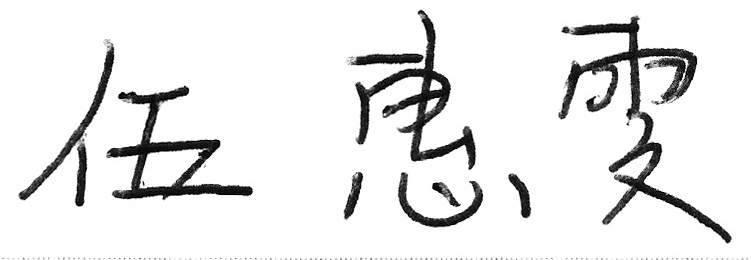 伍惠雯